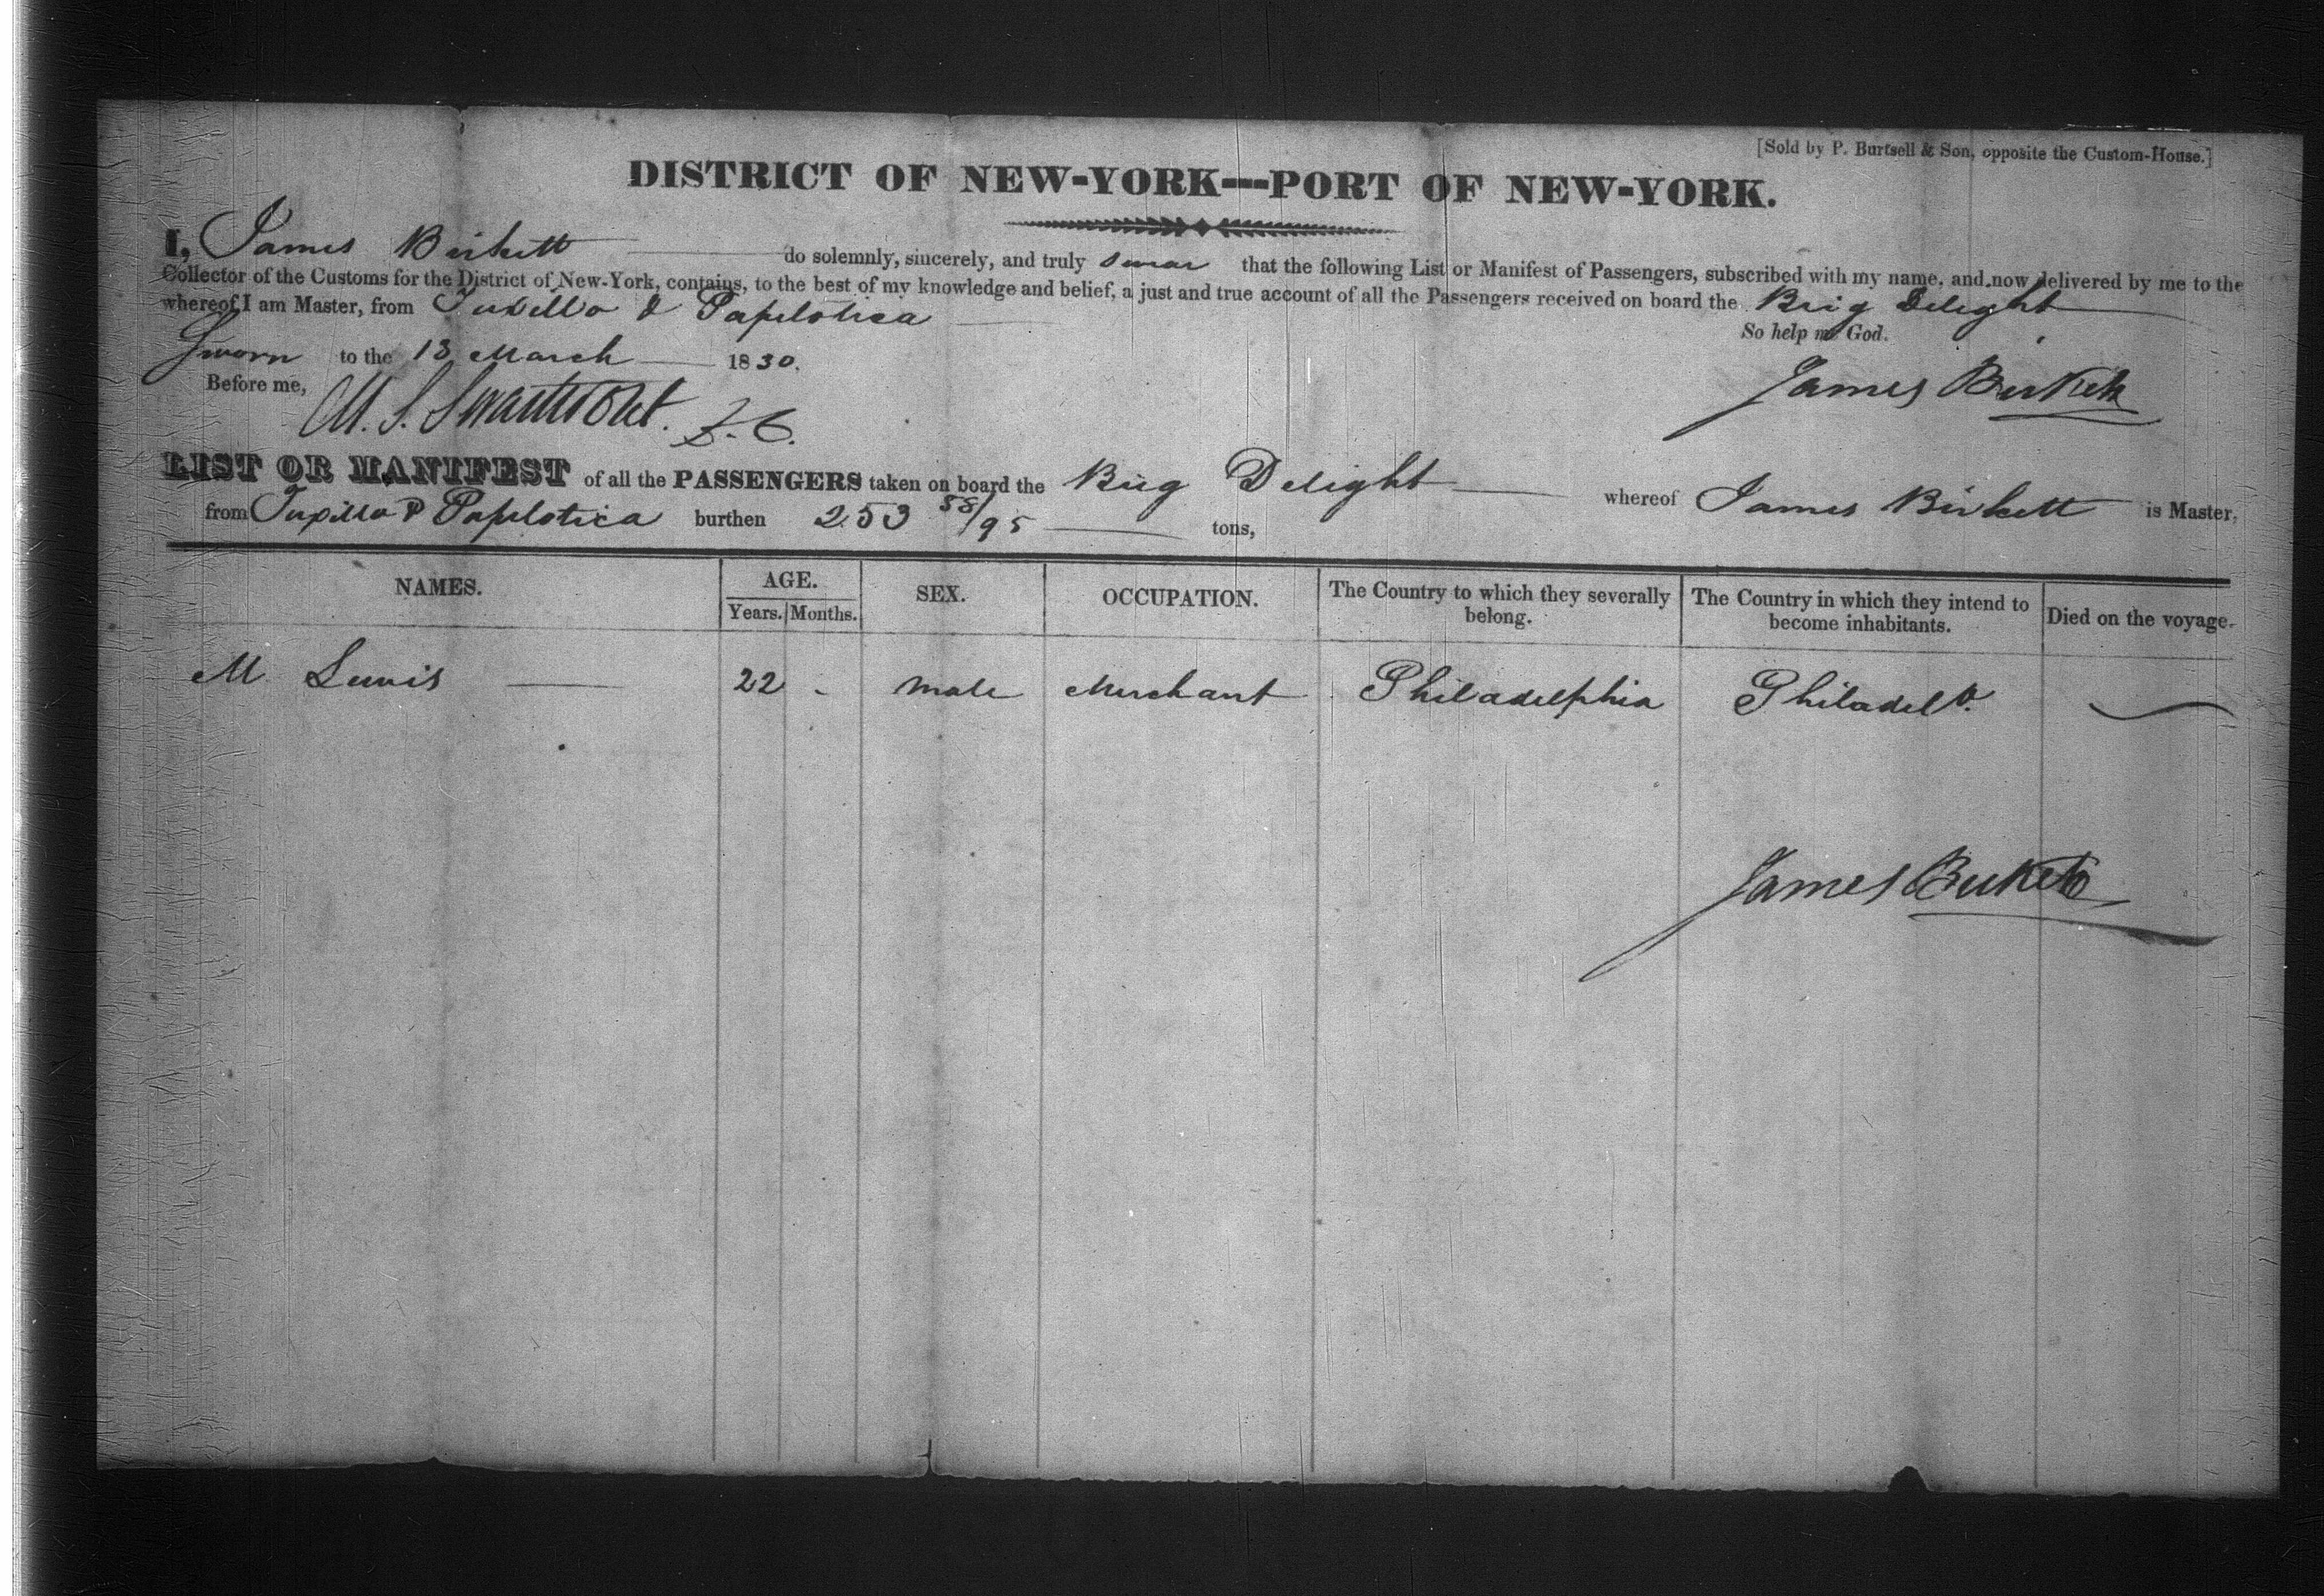 [Sold by P. Burtsell & Son, opposite the Custom-House.]
DISTRICT OF NEW-YORK---PORT OF NEW-YORK.
I, James Birkett do solemnly, sincerely, and truly swear that the following List or Manifest of Passengers, subscribed with my name, and now delivered by me to the
Collector of the Customs for the District of New-York, contains, to the best of my knowledge and belief, a just and true account of all the Passengers received on board the Brig Delight
whereof I am Master, from & Papelotica
So help me God.
Sworn to the 13 March 1830.
James Birkett
Before me,
M. S. Swartwout. D. C.
LIST OR MANIFEST of all the PASSENGERS taken on board the Brig Delight whereof James Birkett is Master,
from & Papelotica burthen 253 58/95 tons,
NAMES. AGE. SEX. OCCUPATION. The Country to which they severally belong. The Country in which they intend to become inhabitants. Died on the voyage.
Years. Months.
M Lewis 22 - male Merchant Philadelphia Philadelp.
James Birkett